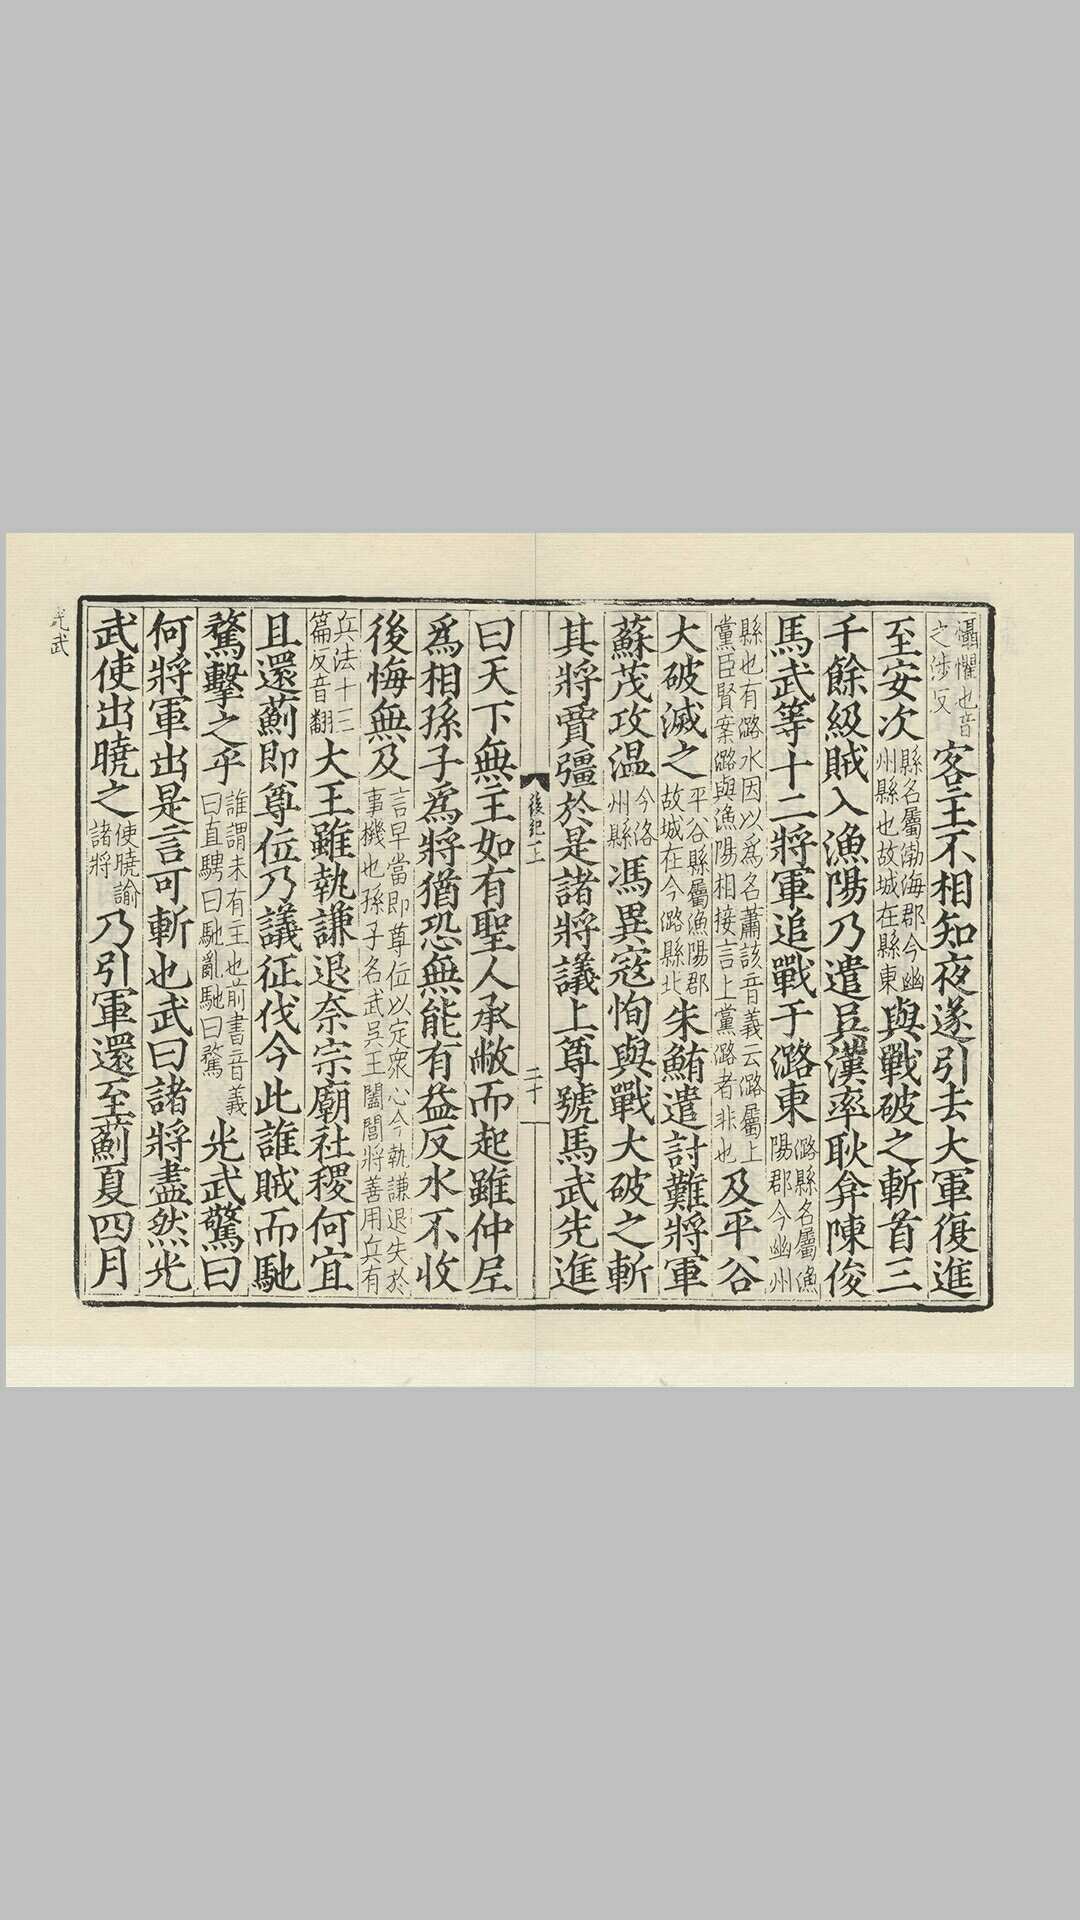 懾懼也音之涉反客主不相知夜遂引去大軍復進
至安次縣名屬渤海郡今幽州縣也故城在縣東與戰破之斬首三
千餘級賊入漁陽乃遣吳漢率耿弇陳俊
馬武等十二將軍追戰于潞東潞縣名屬漁陽郡今幽州
縣也有潞水因以爲名蕭該音義云潞屬上黨臣賢案潞與漁陽相接言上黨潞者非也及平谷
大破滅之平谷縣屬漁陽郡故城在今潞縣北朱鮪遣討難將軍
蘇茂攻温今洛州縣馮異寇恂與戰大破之斬
其將賈彊於是諸將議上尊號馬武先進
後紀一上
二十一
曰天下無主如有聖人承敝而起雖仲尼
爲相孫子爲將猶恐無能有益反水不收
後悔無及言早當即尊位以定衆心今執謙退失於事機也孫子名武吳王闔閭將善用兵有
兵法十三篇反音翻大王雖執謙退奈宗廟社稷何宜
且還薊即尊位乃議征伐今此誰賊而馳
騖擊之乎誰謂未有主也前書音義曰直騁曰馳亂馳曰騖光武驚曰
何將軍出是言可斬也武曰諸將盡然光
武使出曉之使曉諭諸將乃引軍還至薊夏四月
光武